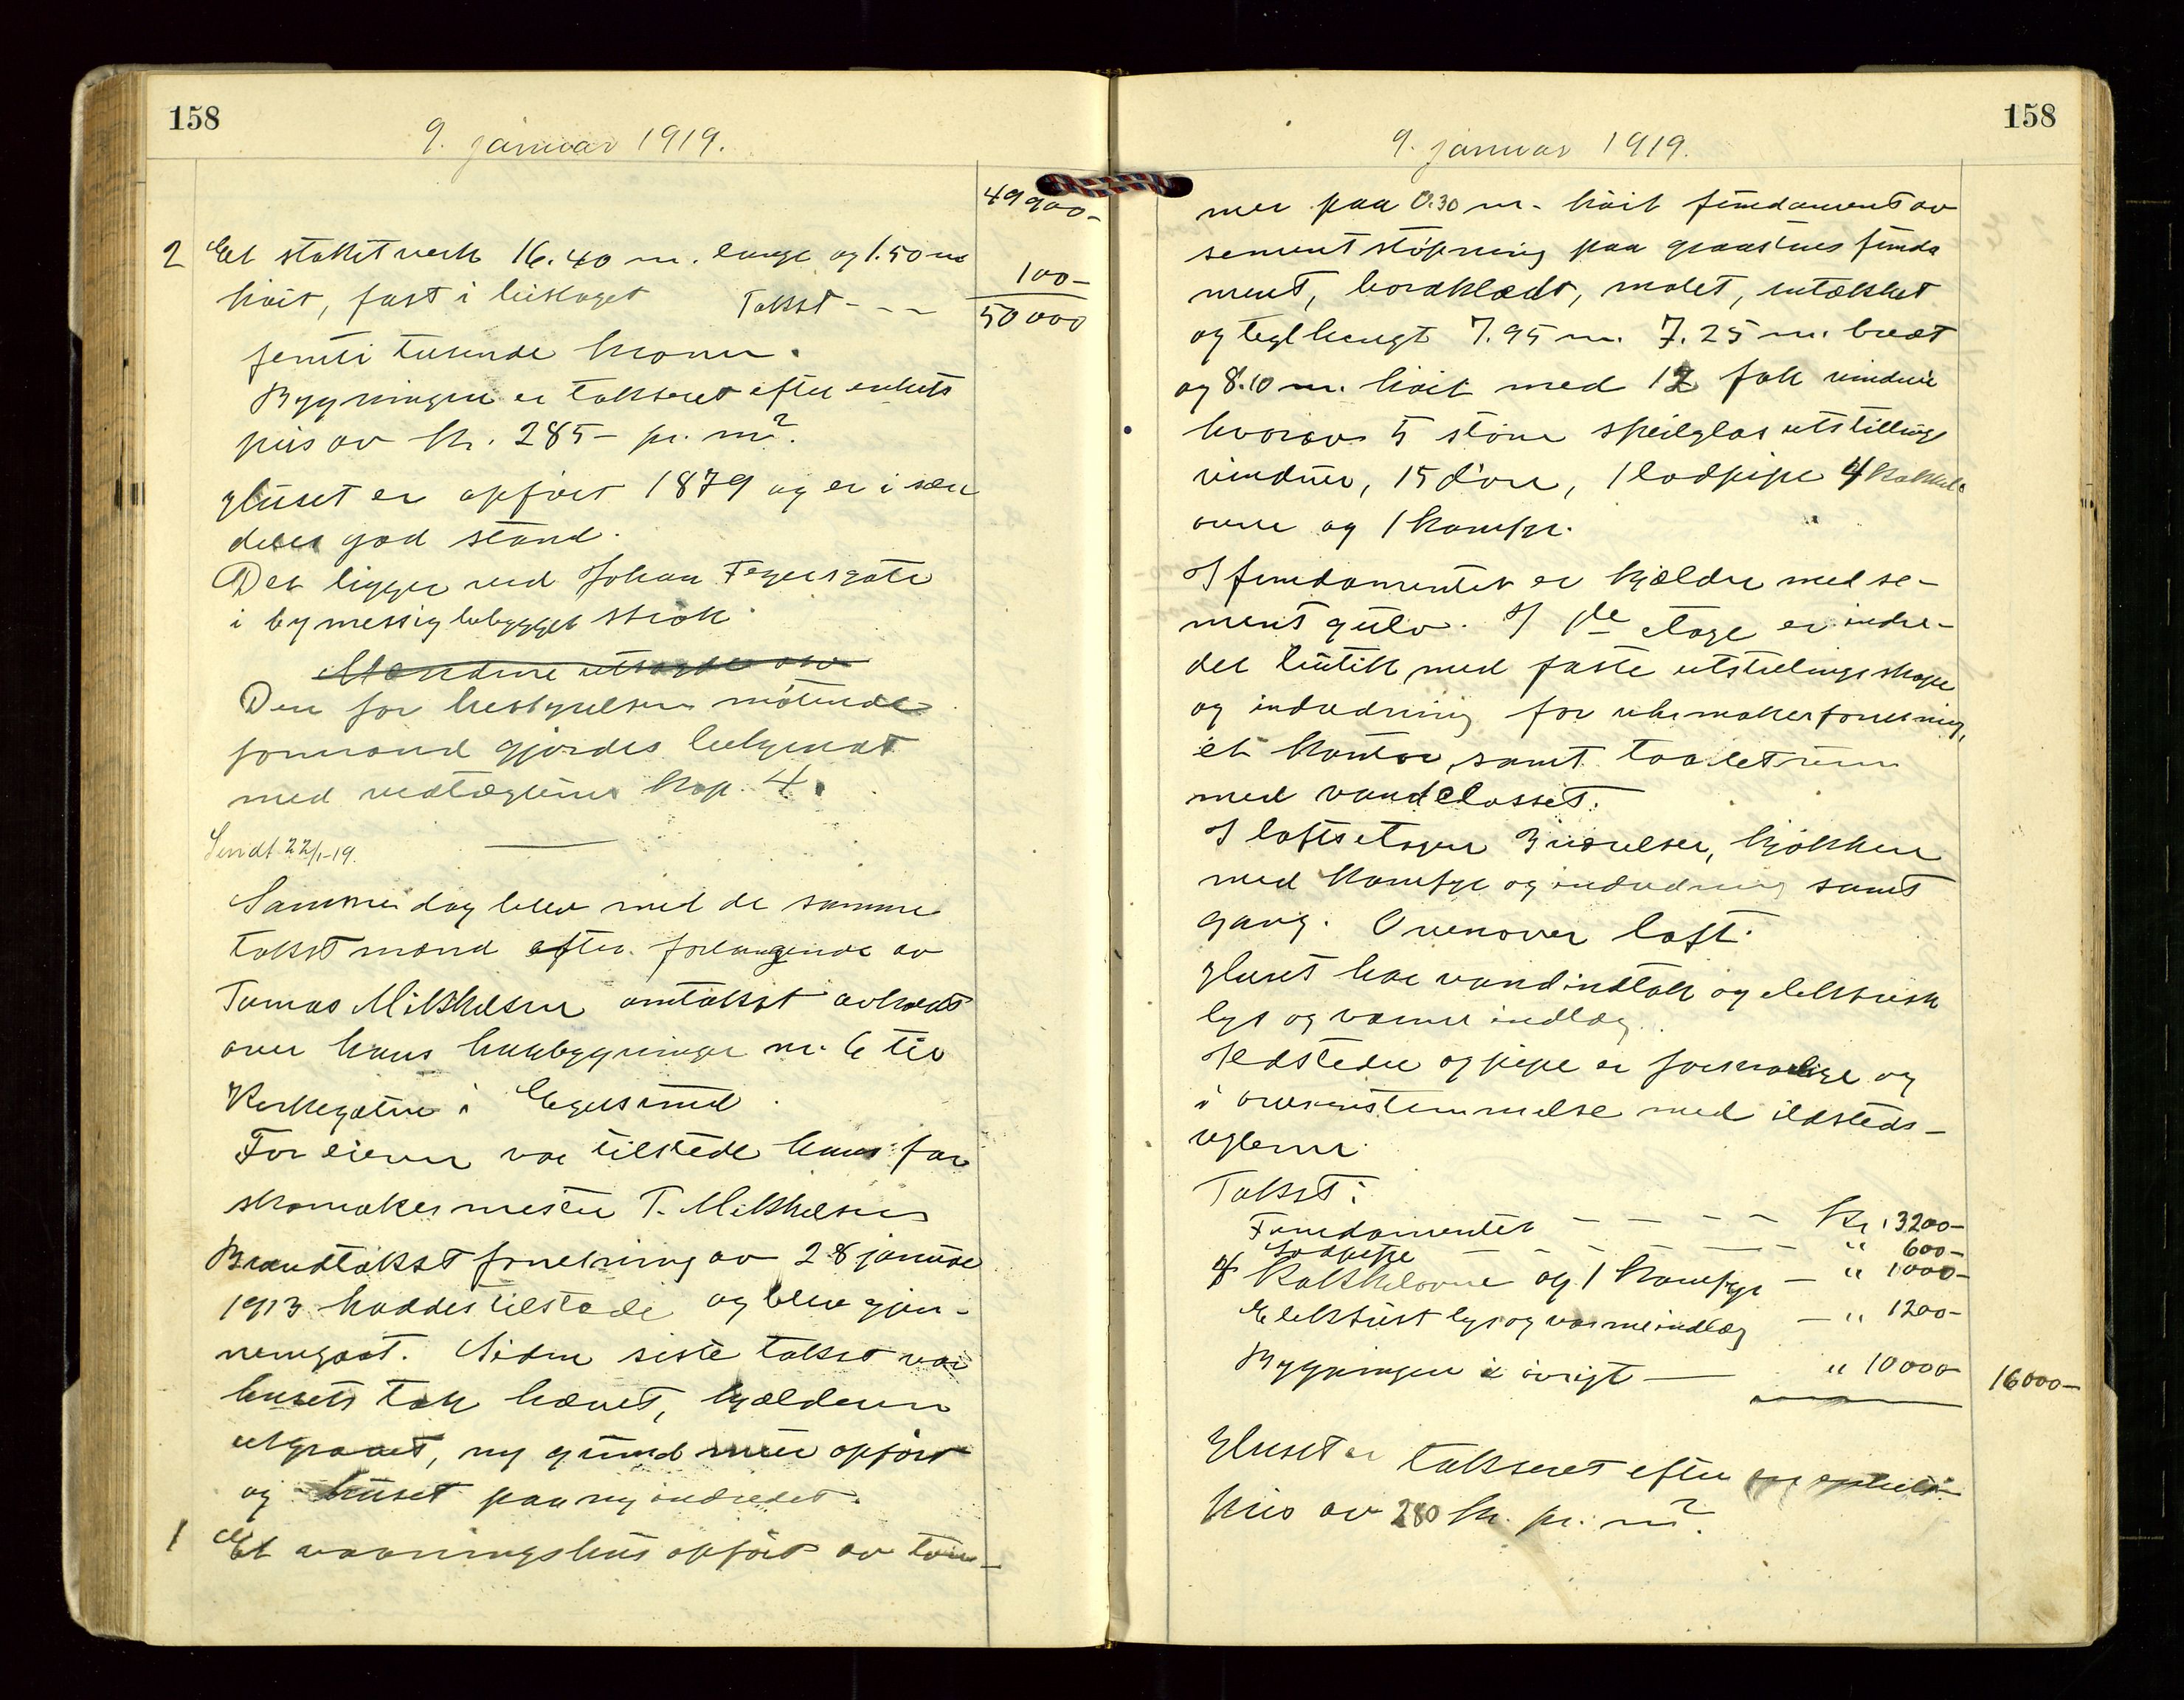 158
9. januar 1919.
49 900-
2 Et stakitverk 16.40 m. langt og 1.50 m
høit, fast i Takst - - - 100-
50 000
femti tusinde kroner.
Bygningen er taksert efter enhets
pris av kr. 285- pr. m².
Huset er opført 1879 og er i sær
deles god stand.
Det ligger ved Johan Feyersgate
i bymessig bebygget strøk.
Mændene utsagde
Den for bestyrelsen møtende
formand gjordes bekjendt
med vedtægternes kap. 4.
Sendt 22/1-19.
Samme dag blev med de samme
takstmænd efter forlangende av
Tomas Mikkelsen omtakst avholdt
over hans husbygninger nr. 6 til
Kirkegaten i Egersund.
For eieren var tilstede hans far
skomakermester T. Mikkelsen
Brandtakstforretning av 28 januar
1913 haddes tilstede og blev gjen-
nemgaat. Siden siste takst var
husets tak hævet, kjælderen
utgravet, ny grundmur opført
og huset paany indredet.
1 Et vaaningshus opført av tøm-
158
9. januar 1919.
mer paa 0.30 m. høit fundament av
sementstøpning paa graastens funda
ment, bordklædt, malet, utækket
og teglhengt 7.95 m. 7.25 m. bredt
og 8.10 m. høit med 12 fak vinduer
hvorav 5 større speilglas utstillings
vinduer, 15 døre, 1 lodpipe 4 kakkel
ovne og 1 komfyr.
I fundamentet er kjælder med se-
mentgulv. I 1ste etage er indre-
det butik med faste utstillingsskape
og indredning for uhrmakerforretning,
et kontor, samt toaletrum
med vandclosset.
I loftsetagen 3 værelser, kjøkken
med komfyr og indredning samt
gang. Ovenover loft.
Huset har vandindtak og elektrisk
lys og varme indlæg.
Ildsteder og pipe er forsvarlige og
i overenstemmelse med ildsteds-
reglerne.
Takst:
Fundamentet - - - - Kr. 3200-
Lodpipe - - - - - " 600-
4 Kakkelovne og 1 komfyr - " 1000-
Elektrisk lys og varmeindlæg - " 1200-
Bygningen i øvrigt - " 10000 16000-
Huset er takseret efter en enhets
pris av 280 kr. pr. m².